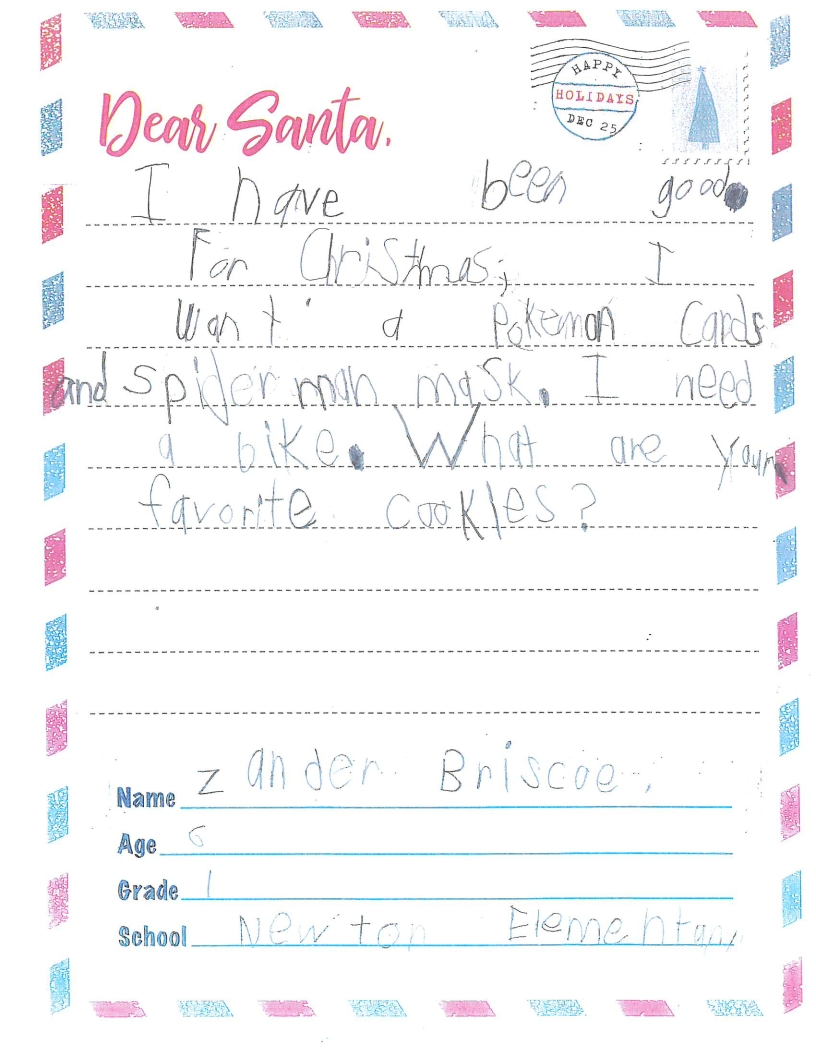 HAPPY
HOLIDAYS
DEC 25
Dear Santa,
I have been good.
For Christmas, I
want a Pokemon Cards
and Spider man mask. I need
a bike. What are your
favorite cookies?
Name Zander Briscoe
Age 6
Grade 1
School Newton Elementary